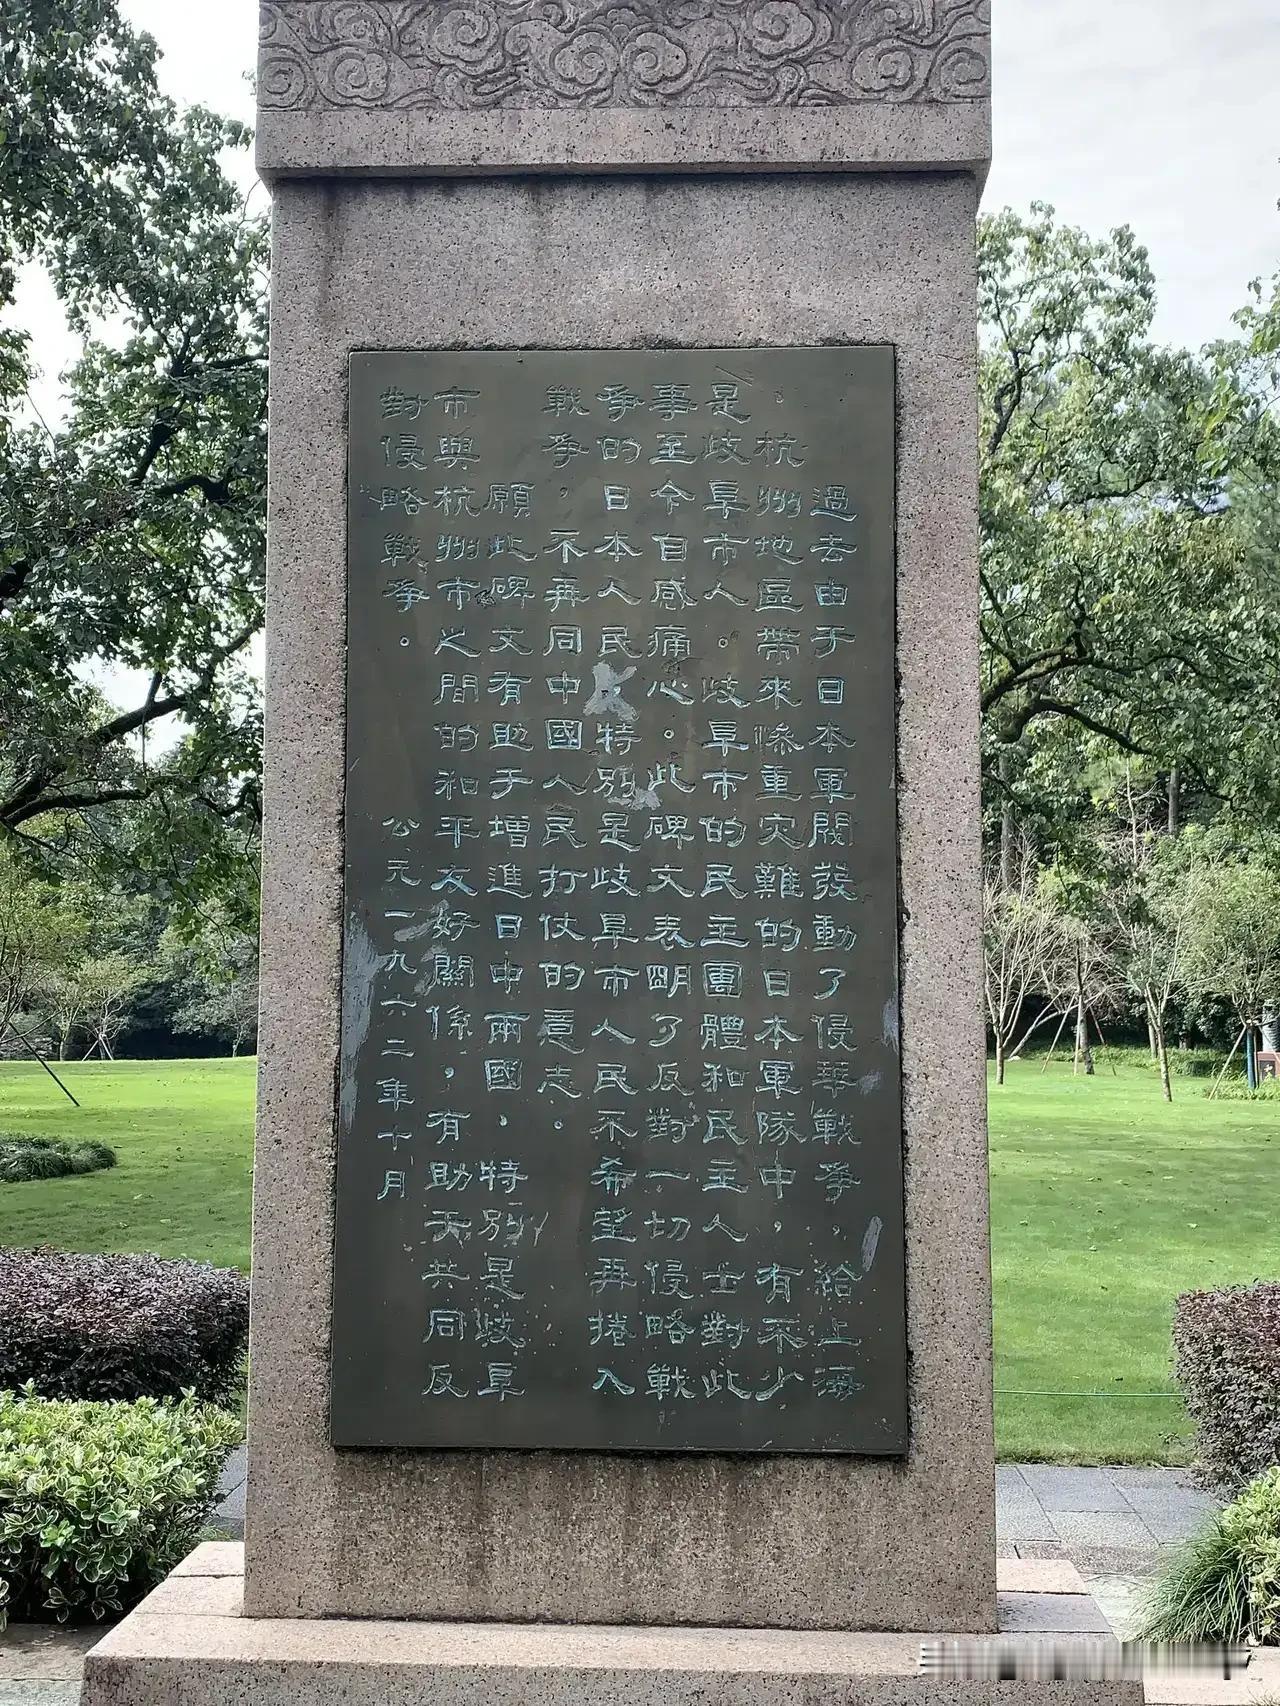 過去由于日本軍閥發動了侵華戰爭，給上海
、杭州地區帶來慘重灾難的日本軍隊中，有不少
是歧阜市人。歧阜市的民主團體和民主人士對此
事至今自感痛心。此碑文表明了反對一切侵略戰
爭的日本人民特別是歧阜市人民不希望再捲入
戰爭，不再同中國人民打仗的意志。
願此碑文有助于增進日中兩國，特別是歧阜
市與杭州市之間的和平友好關係，有助于共同反
對侵略戰爭。
公元一九六二年十月